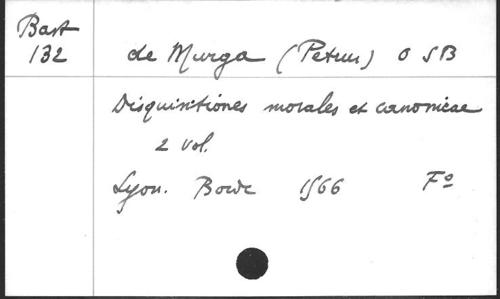 Bast
132
de Murga (Petrus) O S B
Disquisitiones morales et canonicae
2 vol.
Lyon. Borde 1566 Fº